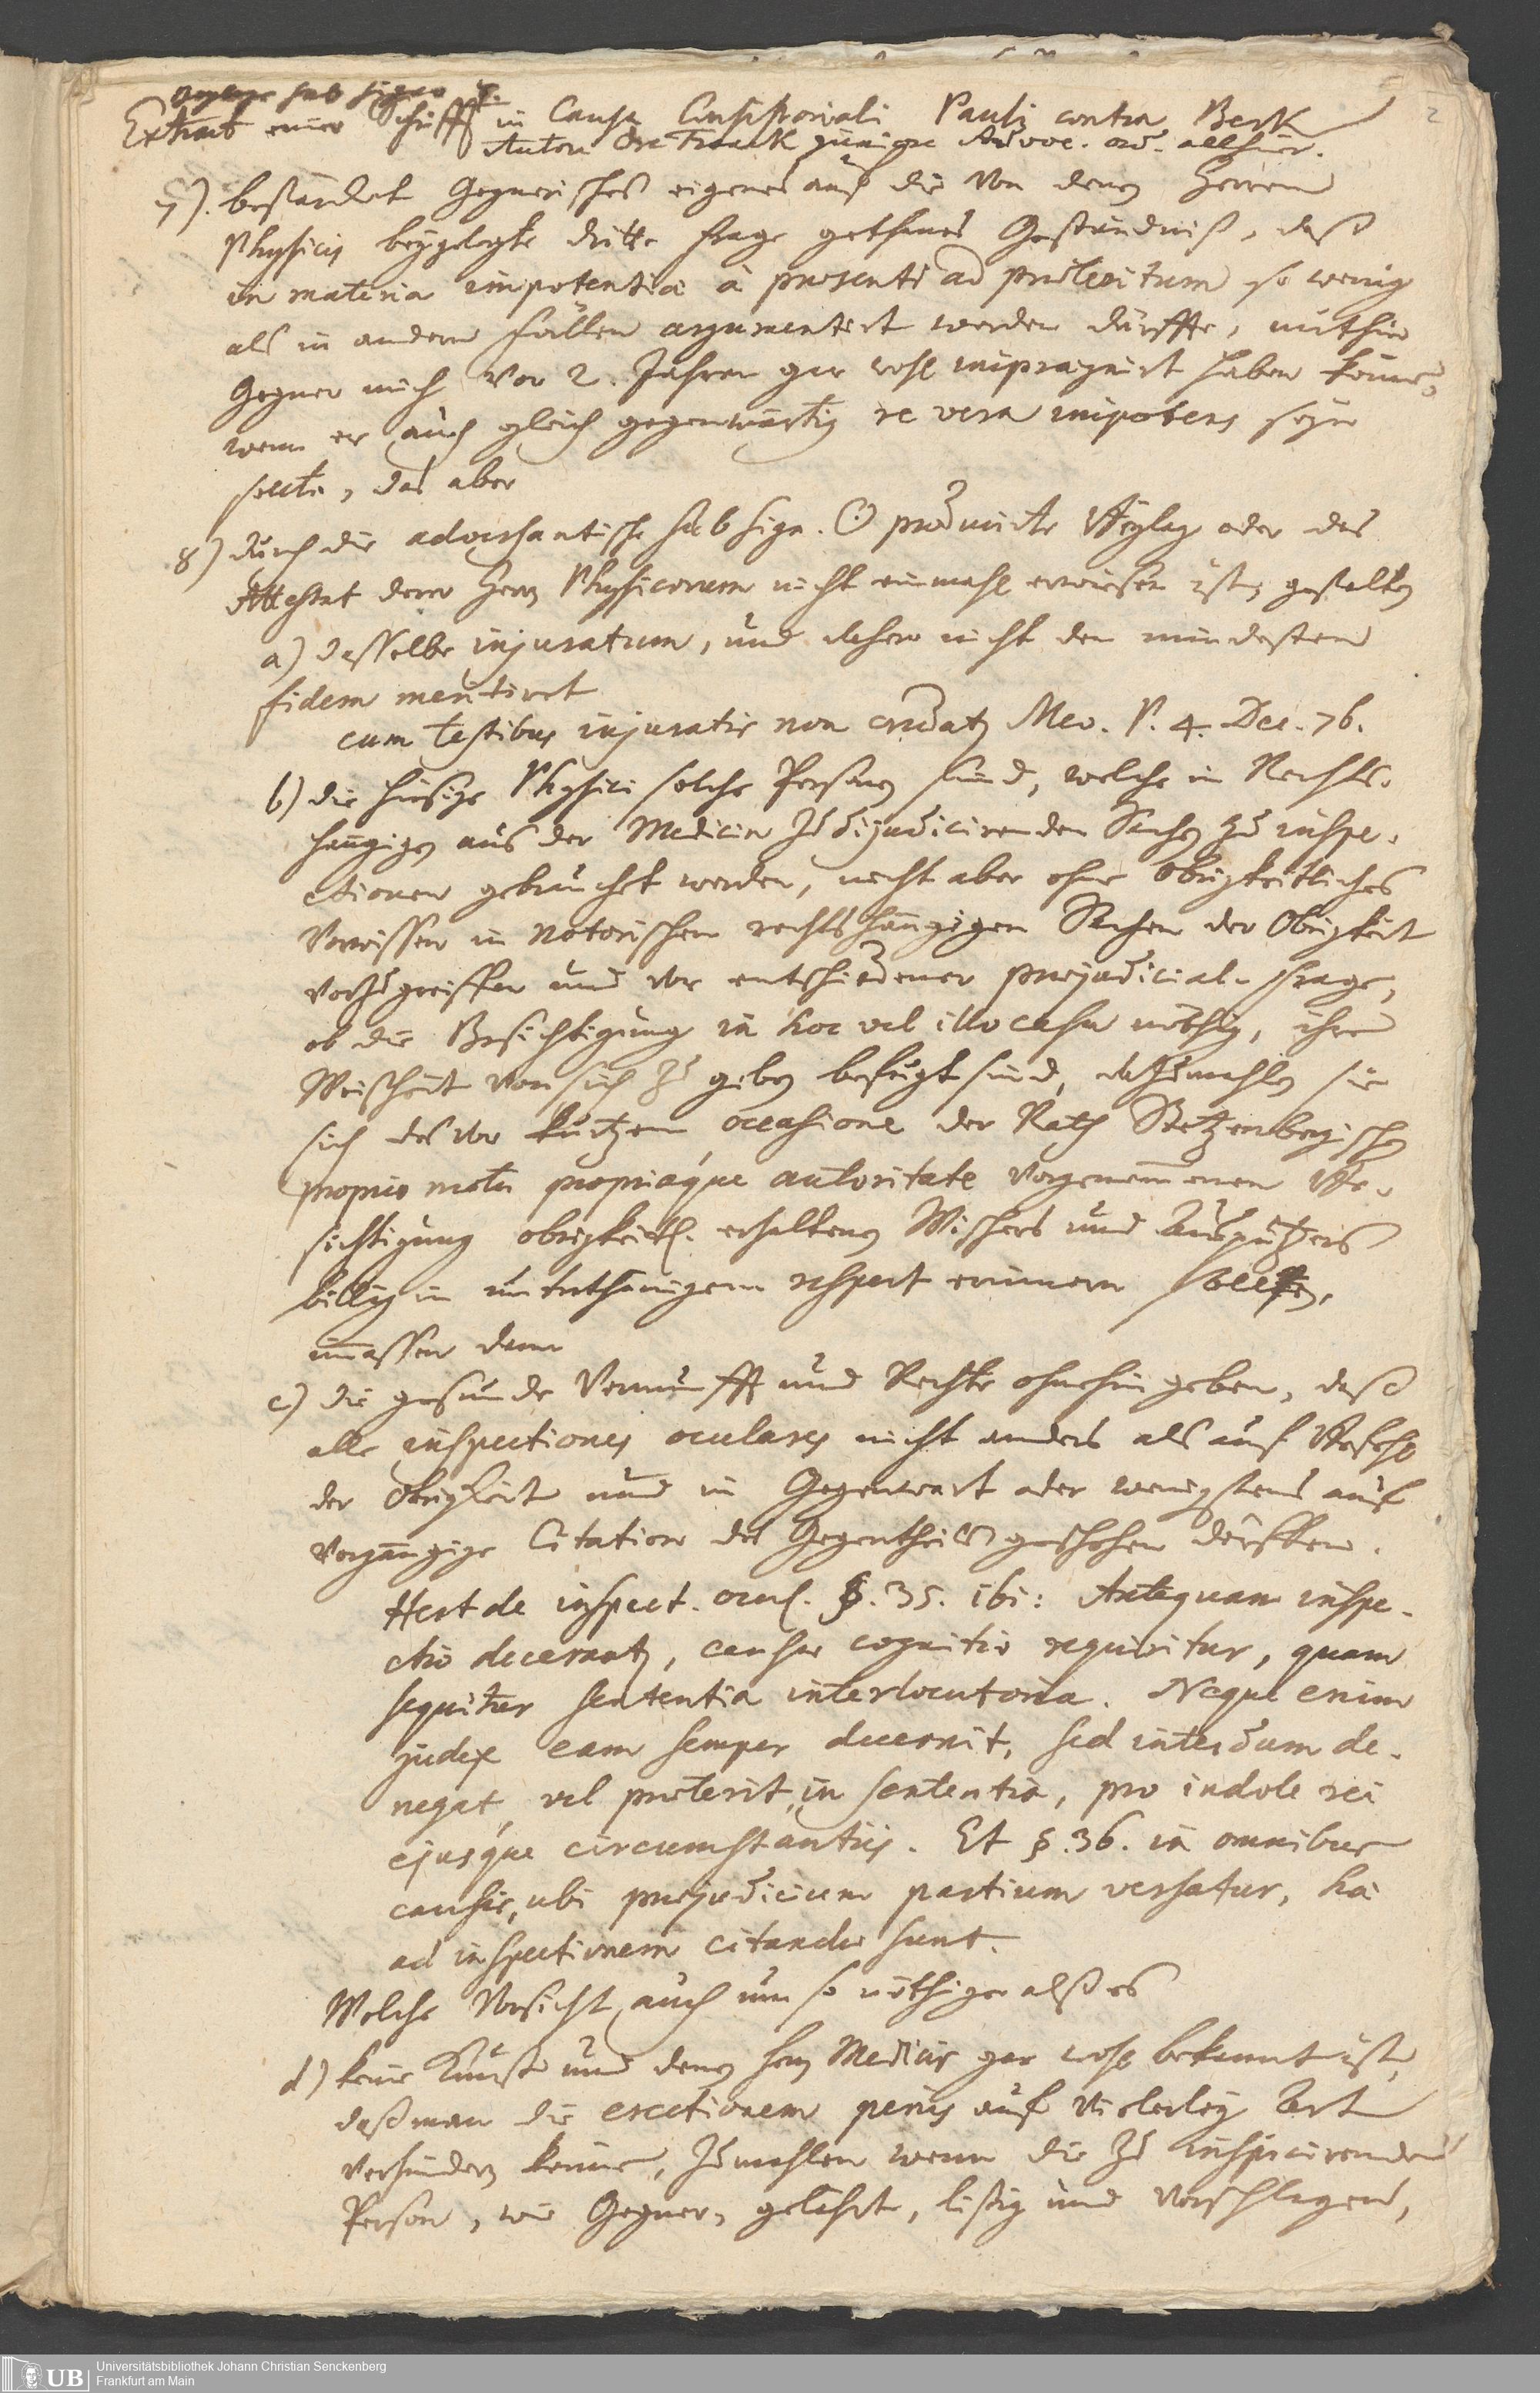 Beylage sub signo
Extract einer Schrifft in Causa Consistoriali Pauli contra Beck
Autore Dre Franck juniore Advoc. ord. allhier.
2
7). bestärcket Gegnerisches eigenes auf die von denen Herren
Physicis beygelegte dritte Frage gethanes Geständniß, daß
in materia impotentiæ à præsenti ad præteritum so wenig
als in andern Fällen argumentirt werden dürffte, mithin
Gegner mich vor 2. Jahren gar wohl imprægnirt haben könne,
wenn er auch gleich gegenwärtig re vera impotens seyn
sollte, das aber
8) durch die adversantische sub sign. ☉ producirte Beylag oder das
Attestat derer Herrn Physicorum nicht einmahl erwiesen ist, gestalten
a) dasselbe injuratum, und daher nicht den mindesten
fidem meritiret
cum testibus injuratis non credatur Mev. P. 4. Dec. 76.
b) die hiesige Physici solche Personen sind, welche in Rechts-
hängigen aus der Medicin zu dijudicirenden Sachen zu inspe-
ctionen gebrauchet werden, nicht aber ohne Obrigkeitliches
Vorwissen in notorischen rechtshängigen Sachen der Obrigkeit
vorzugreiffen und vor entschiedener præjudicial-Frage,
ob die Besichtigung in hoc vel illo casu nöthig, ihre
Weisheit von sich zu geben befugt sind, dazumahlen sie
sich des vor kurtzem occasione der Rath Stetzenbergischen
proprio motu propriaque autoritate vorgenommenen Be-
sichtigung obrigkeitl. erhaltenen Wischers und Ausputzers
billig in unterthänigem respect erinnern sollten,
immassen dann
c) die gesunde Vernunfft und Rechte ohnehin geben, daß
alle inspectiones oculares nicht anders als auf Befehl
der Obrigkeit und in Gegenwart oder wenigstens auf
vorgängige Citation des Gegentheils geschehen dörffen.
Hert de inspect. ocul. §. 35. ibi: Antequam inspe-
ctio decernatur, causæ cognitio requiritur, quam
sequitur sententia interlocutoria. Neque enim
judex eam semper decernit, sed interdum de-
negat, vel præterit, in sententia, pro indole rei
ejusque circumstantiis. Et §. 36. in omnibus
causis, ubi præjudicium partium versatur, hæ
ad inspectionem citandæ sunt.
Welche Vorsicht auch um so nöthiger alß es
d) keine Kunst und denen Hrn Medicis gar wohl bekannt ist,
daß man die erectionem penis auf vielerley Art
verhindern könne, zumahlen wenn die zu inspicirende
Person, wie Gegner, gelehrt, listig und verschlagen,
UB
Universitätsbibliothek Johann Christian Senckenberg
Frankfurt am Main